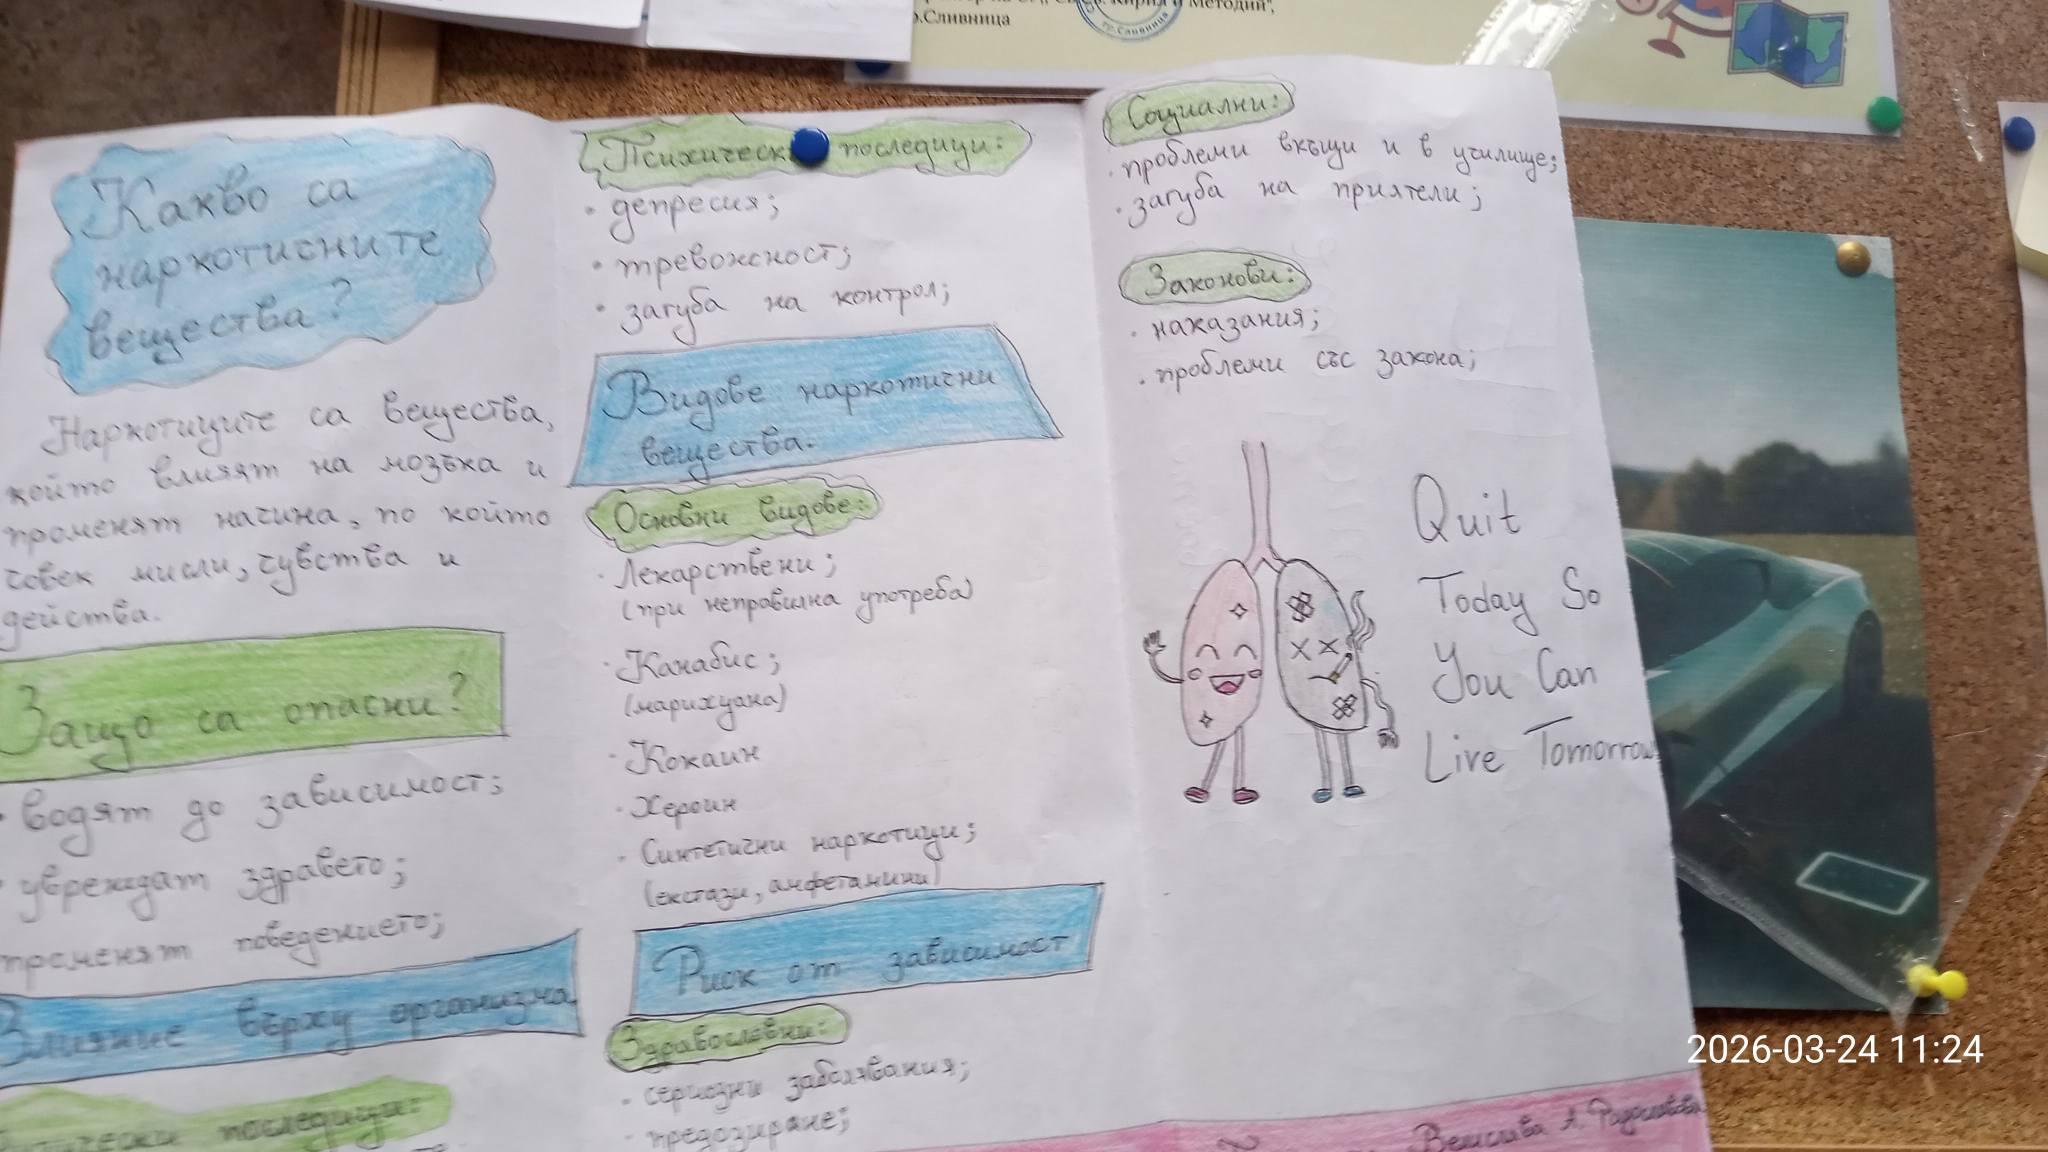 Какво са
наркотичните
вещества?
Наркотиците са вещества,
който влияят на мозъка и
променят начина, по който
човек мисли, чувства и
действа.
Защо са опасни?
водят до зависимост;
увреждат здравето;
променят поведението;
Влияние върху организма
последици:
Психически последици:
• депресия;
• тревожност;
• загуба на контрол;
Видове наркотични
вещества.
Основни видове:
· Лекарствени;
(при неправилна употреба)
· Канабис;
(марихуана)
· Кокаин
· Хероин
· Синтетични наркотици;
(екстази, амфетамини)
Риск от зависимост
Здравословни:
· сериозни заболявания;
· предозиране;
Социални:
· проблеми вкъщи и в училище;
· загуба на приятели;
Законови:
· наказания;
· проблеми със закона;
Quit
Today So
You Can
Live Tomorrow
А. Радославова
Св. Кирил и Методий",
гр.Сливница
гр.Сливница
2026-03-24 11:24